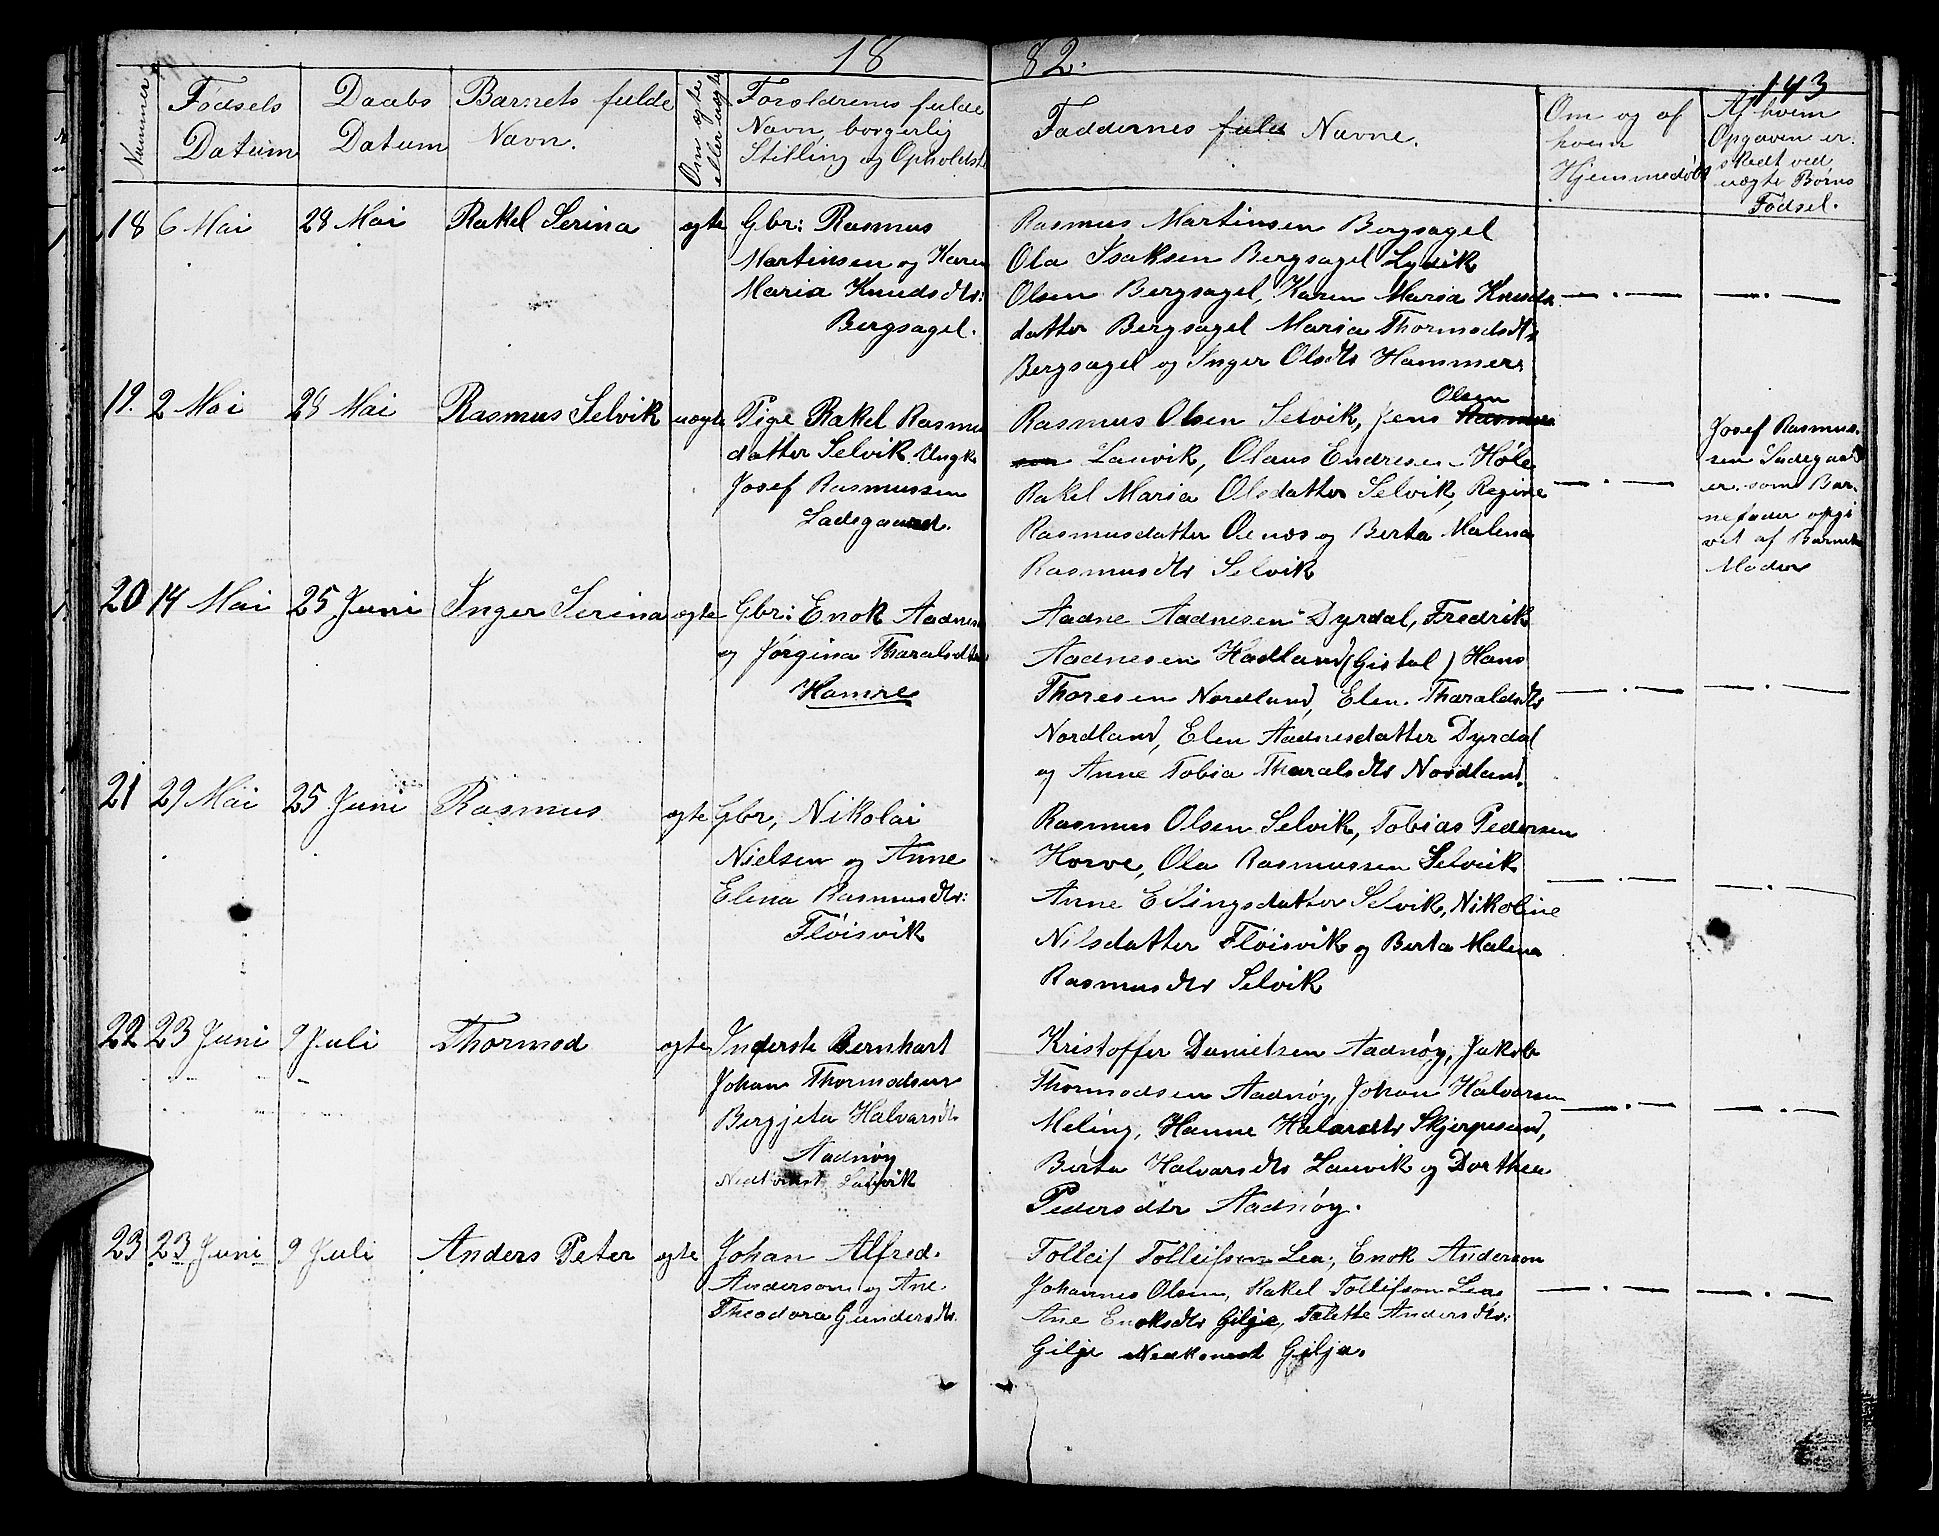 18 82.
143
Nummer
Fødsels Datum
Daabs Datum
Barnets fulde Navn.
Om egte eller uegte
Forældrenes fulde
Navn, borgerlig
Stilling og Opholdst
Faddernes fulde Navne.
Om og af
hvem
Hjemmedøbt
Af hvem
Opgaven er
skedt ved
uægte Børns
Fødsel.
18 6 Mai 28 Mai Rakel Serina egte
Gbr: Rasmus
Martinsen og Karen
Maria Knudsdtr:
Bergsagel.
Rasmus Martinsen Bergsagel
Ola Isaksen Bergsagel Lydik
Olsen Bergsagel, Karen Maria Knuds
datter Bergsagel Maria Thormodsdtr
Bergsagel og Inger Olsdtr Hammer
19. 2 Mai 28 Mai Rasmus Selvik uegte
Pige Rakel Rasmus
datter Selvik. Ungk.
Josef Rasmussen
Ladsgaard.
Olsen
Rasmus Olsen Selvik, Jens Rasmus
sen Lauvik, Olaus Endresen Høle
Rakel Maria Olsdatter Selvik, Regine
Rasmusdatter Oenæs og Berta Malena
Rasmusdtr Selvik
Josef Rasmus-
sen Ladsgaard
er som Bar-
nefader opgi
vet af Barnets
Moder
20 14 Mai 25 Juni Inger Serina egte
Gbr: Enok Aadnes
og Jørgina Tharalsdtr
Hamre
Aadne Aadnesen Dyrdal, Fredrik
Aadnesen Hadland (Gistol) Hans
Thoresen Nordland, Elen Tharaldsdtr
Nordland, Elen Aadnesdatter Dyrdal
og Anne Tobia Tharalsdtr Nordland.
21 29 Mai 25 Juni Rasmus egte
Gbr, Nikolai
Nielsen og Anne
Elena Rasmusdtr:
Fløisvik
Rasmus Olsen Selvik, Tobias Pedersen
Horve, Ola Rasmussen Selvik
Anne Elingsdatter Selvik, Nikoline
Nilsdatter Fløisvik og Berta Malena
Rasmusdtr Selvik
22 23 Juni 9 Juli Thormod egte
Inderste Bernhart
Johan Thormodsen
Bergjeta Halvarsdtr
Aadnøy
Nedkomst Lauvik
Kristoffer Danielsen Aadnøy, Jakob
Thormodsen Aadnøy, Johan Halvorsen
Meling, Hanne Halvarsdtr Skjerpesund,
Berta Halvarsdtr Lauvik og Dorthea
Pedersdtr Aadnøy.
23 23 Juni 9 Juli Anders Peter egte
Johan Alfred
Anderson og Ane
Theodora Gundersdtr.
Tolleif Tolleifson Lea, Enok Anderson
Johannes Olsen, Rakel Tollifson Lea
Ane Enoksdtr Gilje, Talette Andersdtr:
Gilje Nedkomst Gilja.